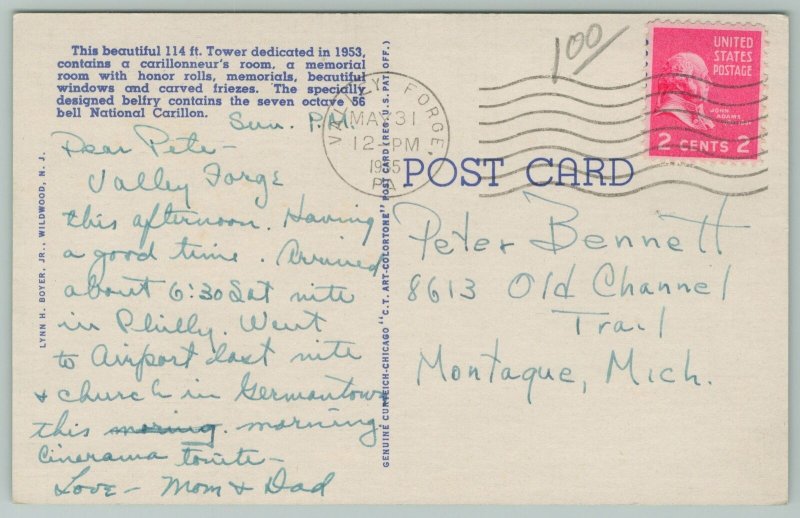 This beautiful 114 ft. Tower dedicated in 1953,
contains a carillonneur's room, a memorial
room with honor rolls, memorials, beautiful
windows and carved friezes. The specially
designed belfry contains the seven octave 56
bell National Carillon.
Sun. P.M.
Dear Pete-
Valley Forge
this afternoon. Having
a good time. Arrived
about 6:30 Sat nite
in Philly. Went
to Airport last nite
& church in Germantown
this morning. morning
Cinerama tonite-
Love- Mom & Dad
LYNN H. BOYER, JR., WILDWOOD, N. J.
GENUINE CURTEICH-CHICAGO "C.T. ART-COLORTONE" POST CARD (REG. U.S. PAT. OFF.)
100
VALLEY FORGE,
MAY 31
12-PM
1955
PA
UNITED
STATES
POSTAGE
JOHN
ADAMS
2 CENTS 2
POST CARD
Peter Bennett
8613 Old Channel
Trail
Montague, Mich.